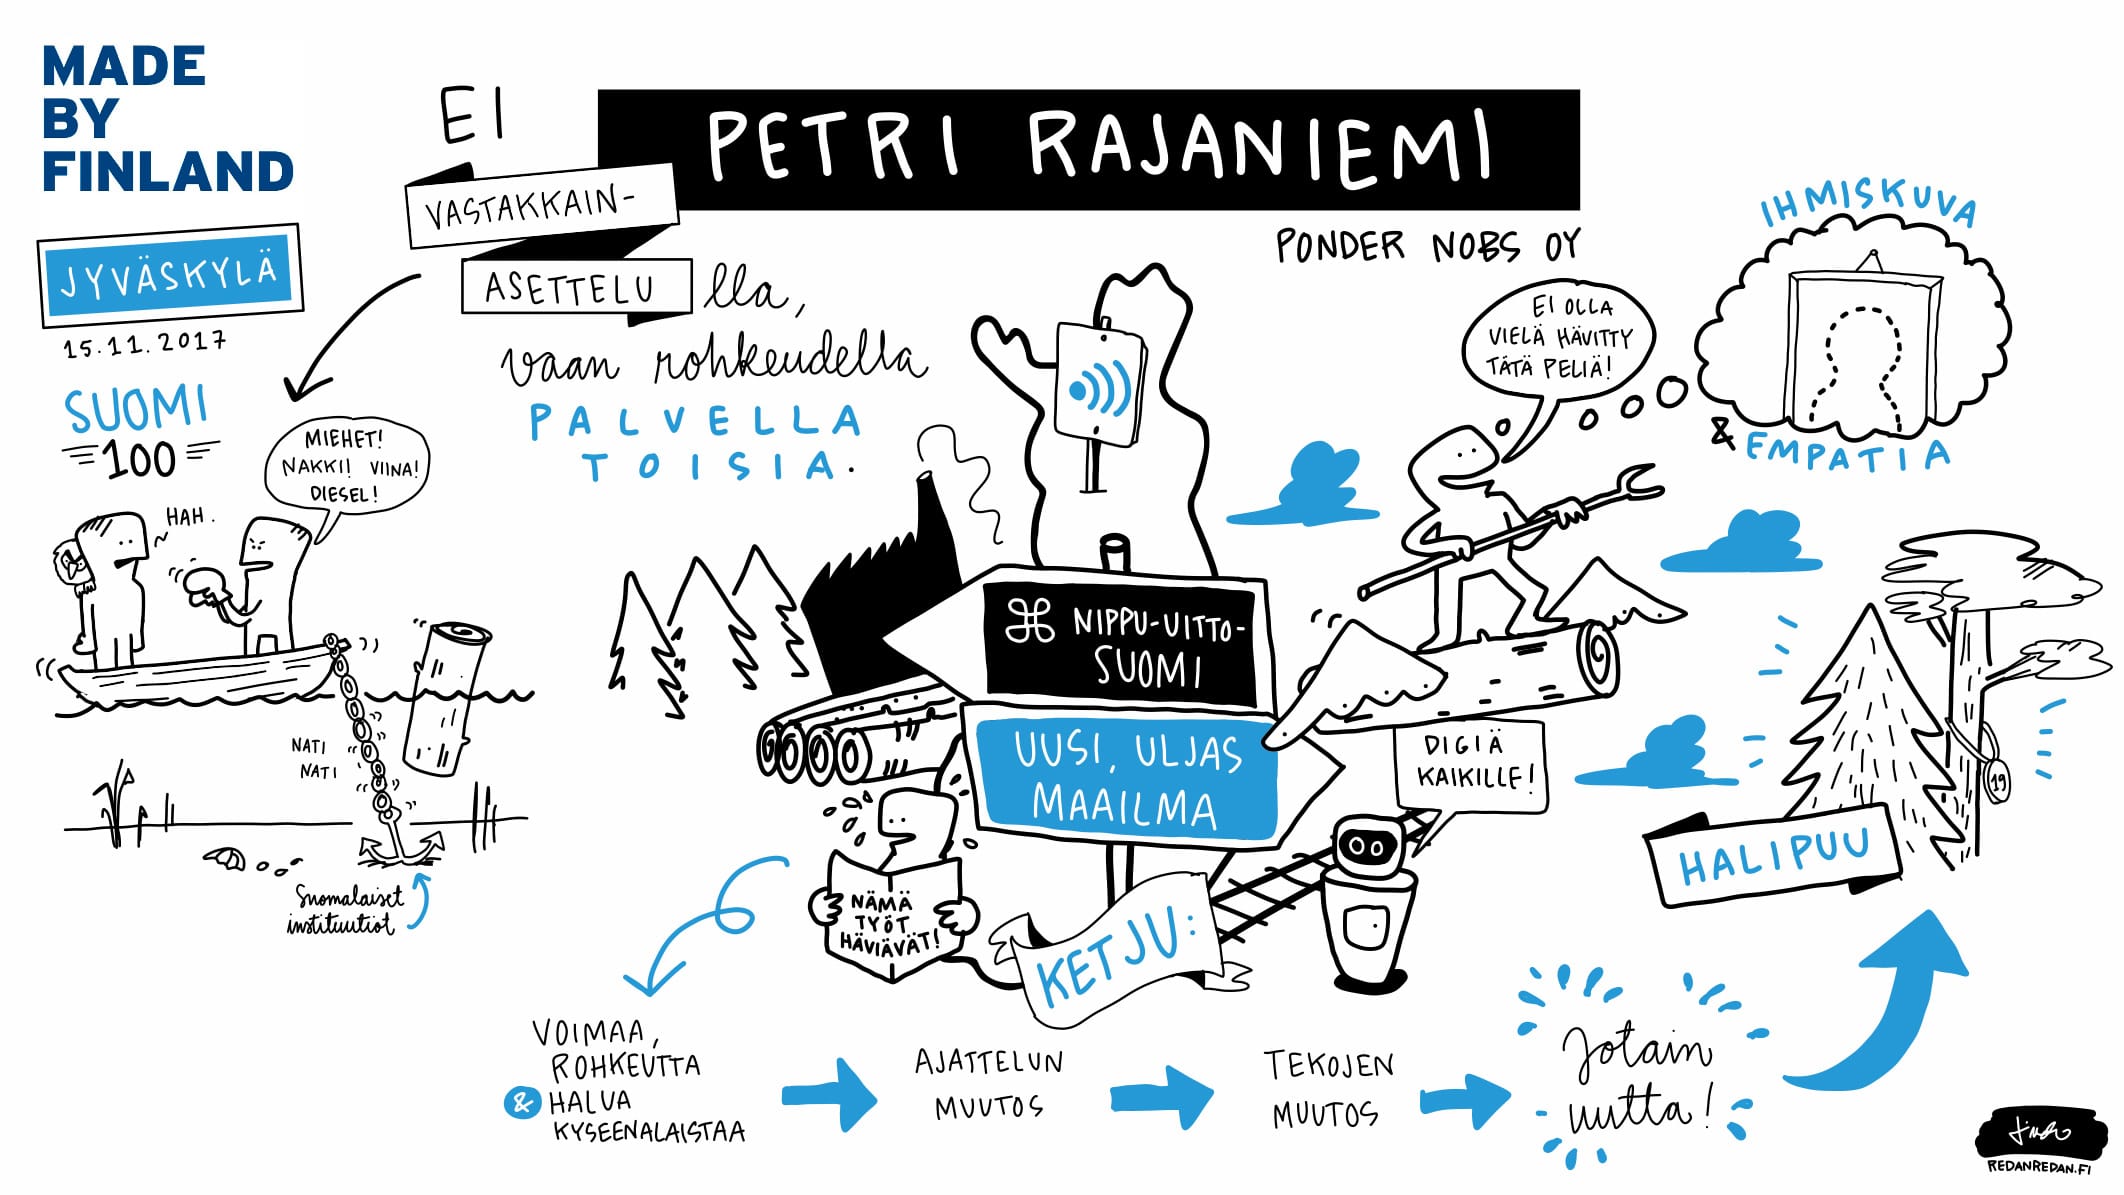 MADE
BY
FINLAND
JYVÄSKYLÄ
15.11.2017
SUOMI
100
EI
VASTAKKAIN-
ASETTELU lla,
vaan rohkeudella
PALVELLA
TOISIA.
PETRI RAJANIEMI
PONDER NOBS OY
MIEHET!
NAKKI! VIINA!
DIESEL!
HAH.
NATI
NATI
Suomalaiset
instituutiot
EI OLLA
VIELÄ HÄVITTY
TÄTÄ PELIÄ!
IHMISKUVA
& EMPATIA
⌘ NIPPU-UITTO-
SUOMI
UUSI, ULJAS
MAAILMA
DIGIÄ
KAIKILLE!
NÄMÄ
TYÖT
HÄVIÄVÄT!
19
HALIPUU
KETJU:
VOIMAA,
ROHKEUTTA
& HALUA
KYSEENALAISTAA
AJATTELUN
MUUTOS
TEKOJEN
MUUTOS
Jotain
uutta!
REDANREDAN.FI